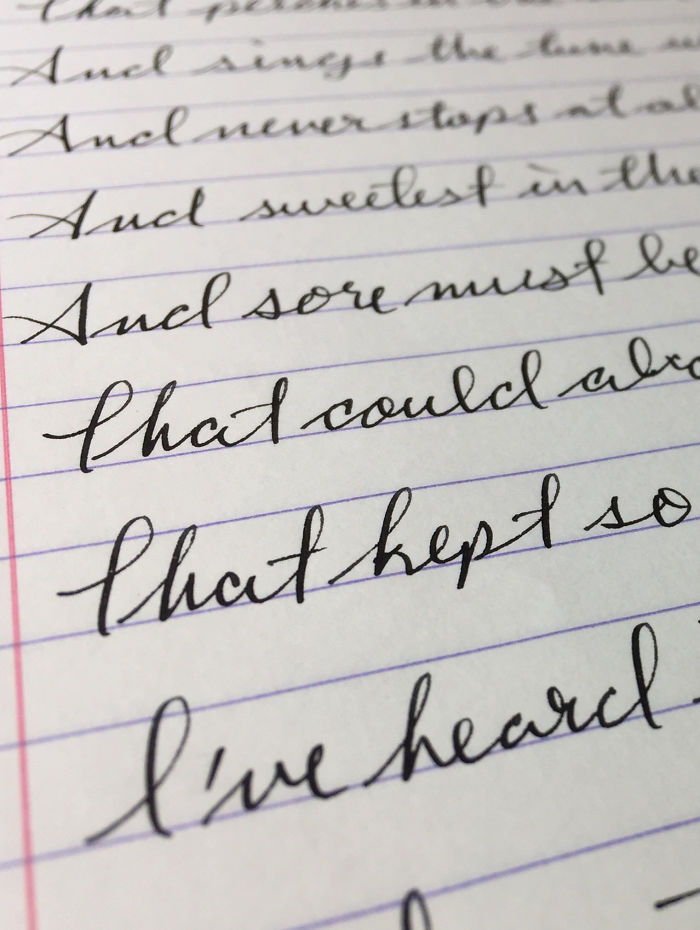 That perches in the
And sings the tune w
And never stops at al
And sweetest in the
And sore must be
That could aba
That kept so
I've heard